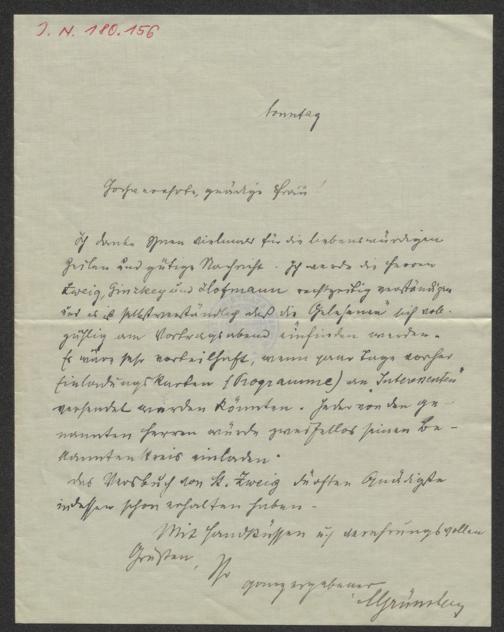 J. N. 180.156
Sonntag
Hochverehrte, gnädige Frau!
Ich danke Ihnen vielmals für die liebenswürdigen
Zeilen und gütige Nachricht. Ich werde die Herren
Zweig, Ginzkey und Hofmann rechtzeitig verständigen
und es ist selbstverständlich daß die "Gelesenen" sich voll-
zählig am Vortragsabend einfinden werden.
Es wäre sehr vorteilhaft, wenn paar Tage vorher
Einladungskarten (Programme) an "Interessenten"
versendet werden könnten. Jeder von den ge-
nannten Herren würde zweifellos seinen Be-
kanntenkreis einladen.
Das Versbuch von St. Zweig dürften Gnädigste
indessen schon erhalten haben.
Mit Handküssen und verehrungsvollen
Grüßen, Ihr
ganz ergebener
MGrünsberg